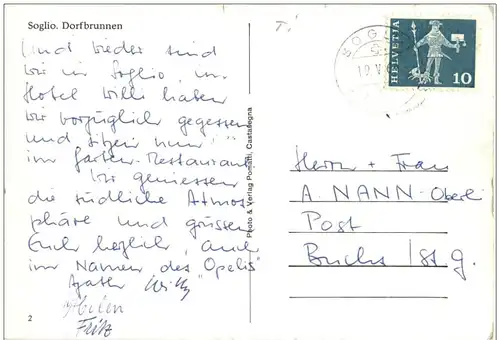 Soglio. Dorfbrunnen
Und wieder sind
wir in Soglio, im
Hotel Willi haben
wir vorzüglich gegessen
und sitzen nun
im Garten-Restaurant
Wir geniessen
die südliche Atmos
phäre und grüssen
Euch herzlich, auch
im Namen des "Opelis"
Agathe Willy
Helen
Fritz
2
Photo & Verlag Pontalti, Castasegna
HELVETIA
10
Herrn + Frau
A. NANN-Oberli
Post
Buchs / St. g.